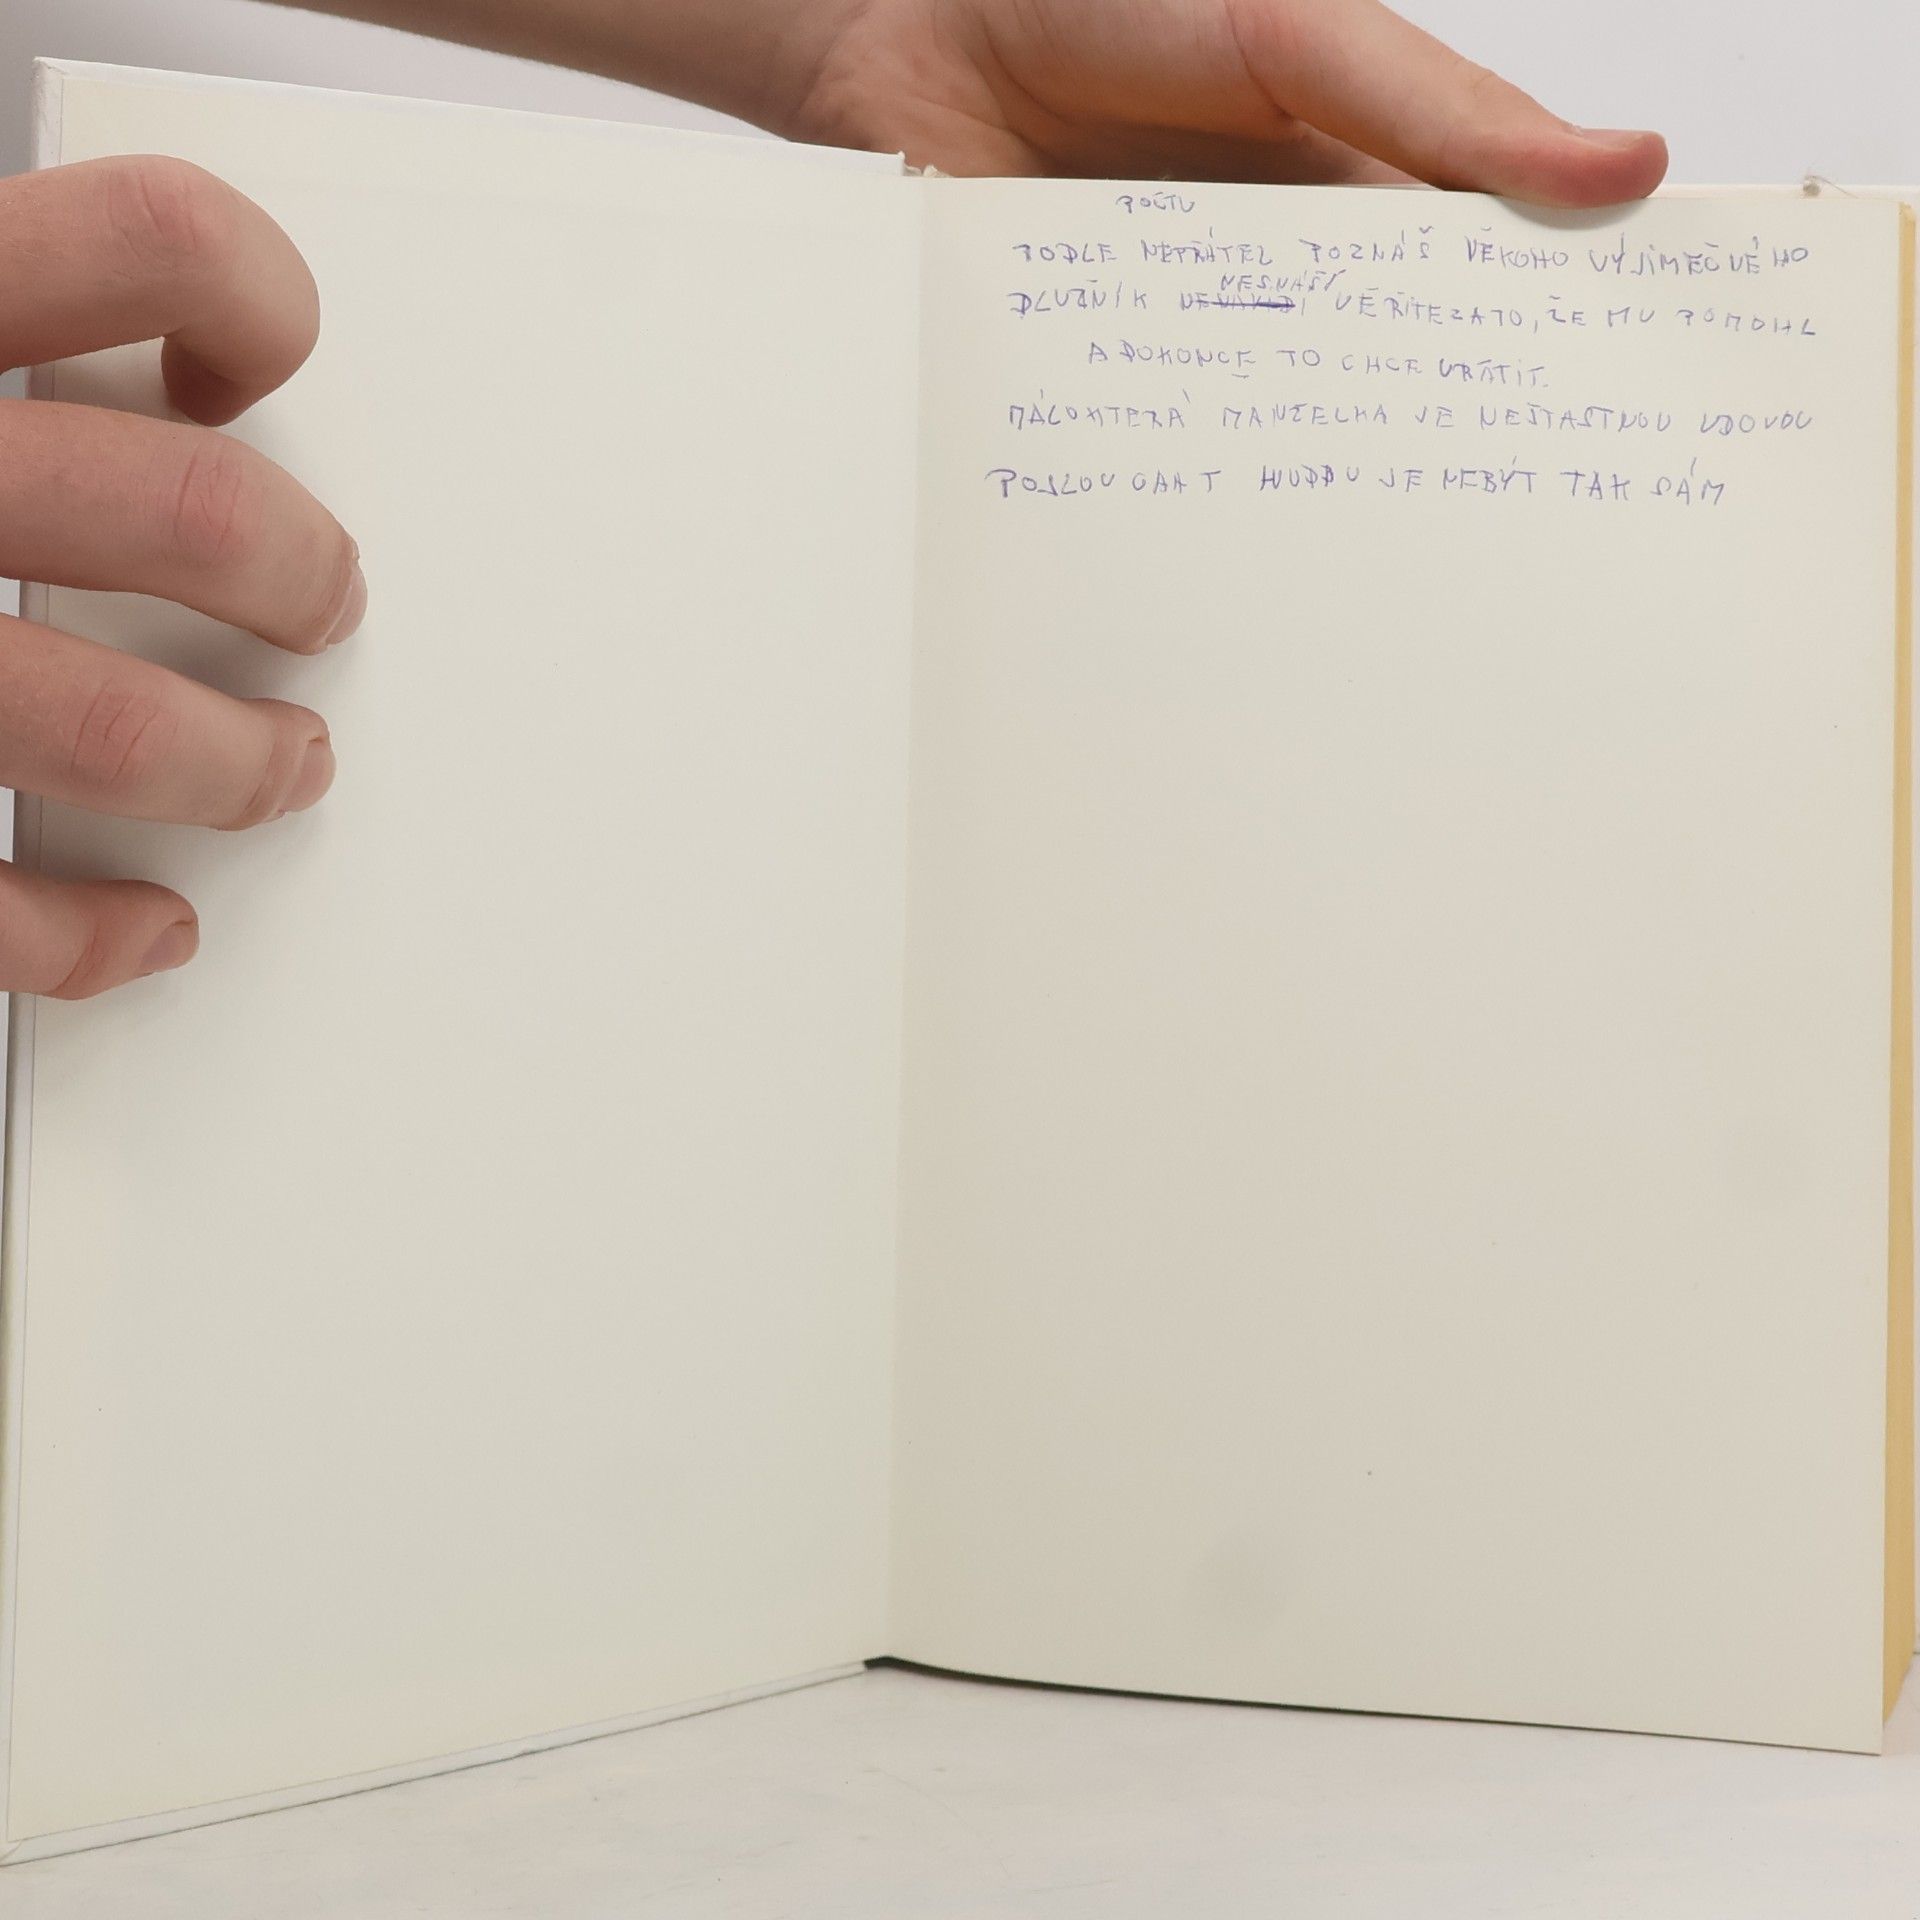 POČTU
PODLE NEPŘÁTEL POZNÁŠ NĚKOHO VÝJIMEČNÉHO
NESNÁŠÍ
DLUŽNÍK NENÁVIDÍ VĚŘITELE ZA TO, ŽE MU POMOHL
A DOKONCE TO CHCE VRÁTIT.
MÁLOKTERÁ MANŽELKA JE NEŠŤASTNOU VDOVOU
POSLOUCHAT HUDBU JE NEBÝT TAK SÁM